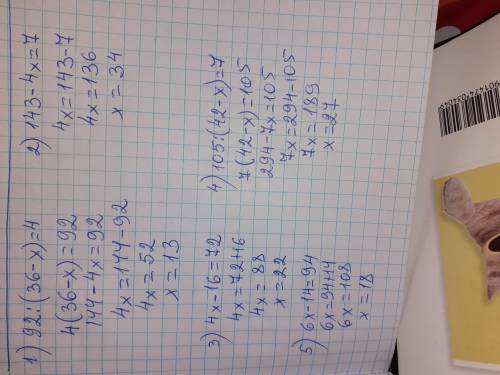 1) 92:(36-x)=4
4(36-x)=92
144-4x=92
4x=144-92
4x=52
x=13
2) 143-4x=7
4x=143-7
4x=136
x=34
3) 4x-16=72
4x=72+16
4x=88
x=22
4) 105:(42-x)=7
7(42-x)=105
294-7x=105
7x=294-105
7x=189
x=27
5) 6x-14=94
6x=94+14
6x=108
x=18